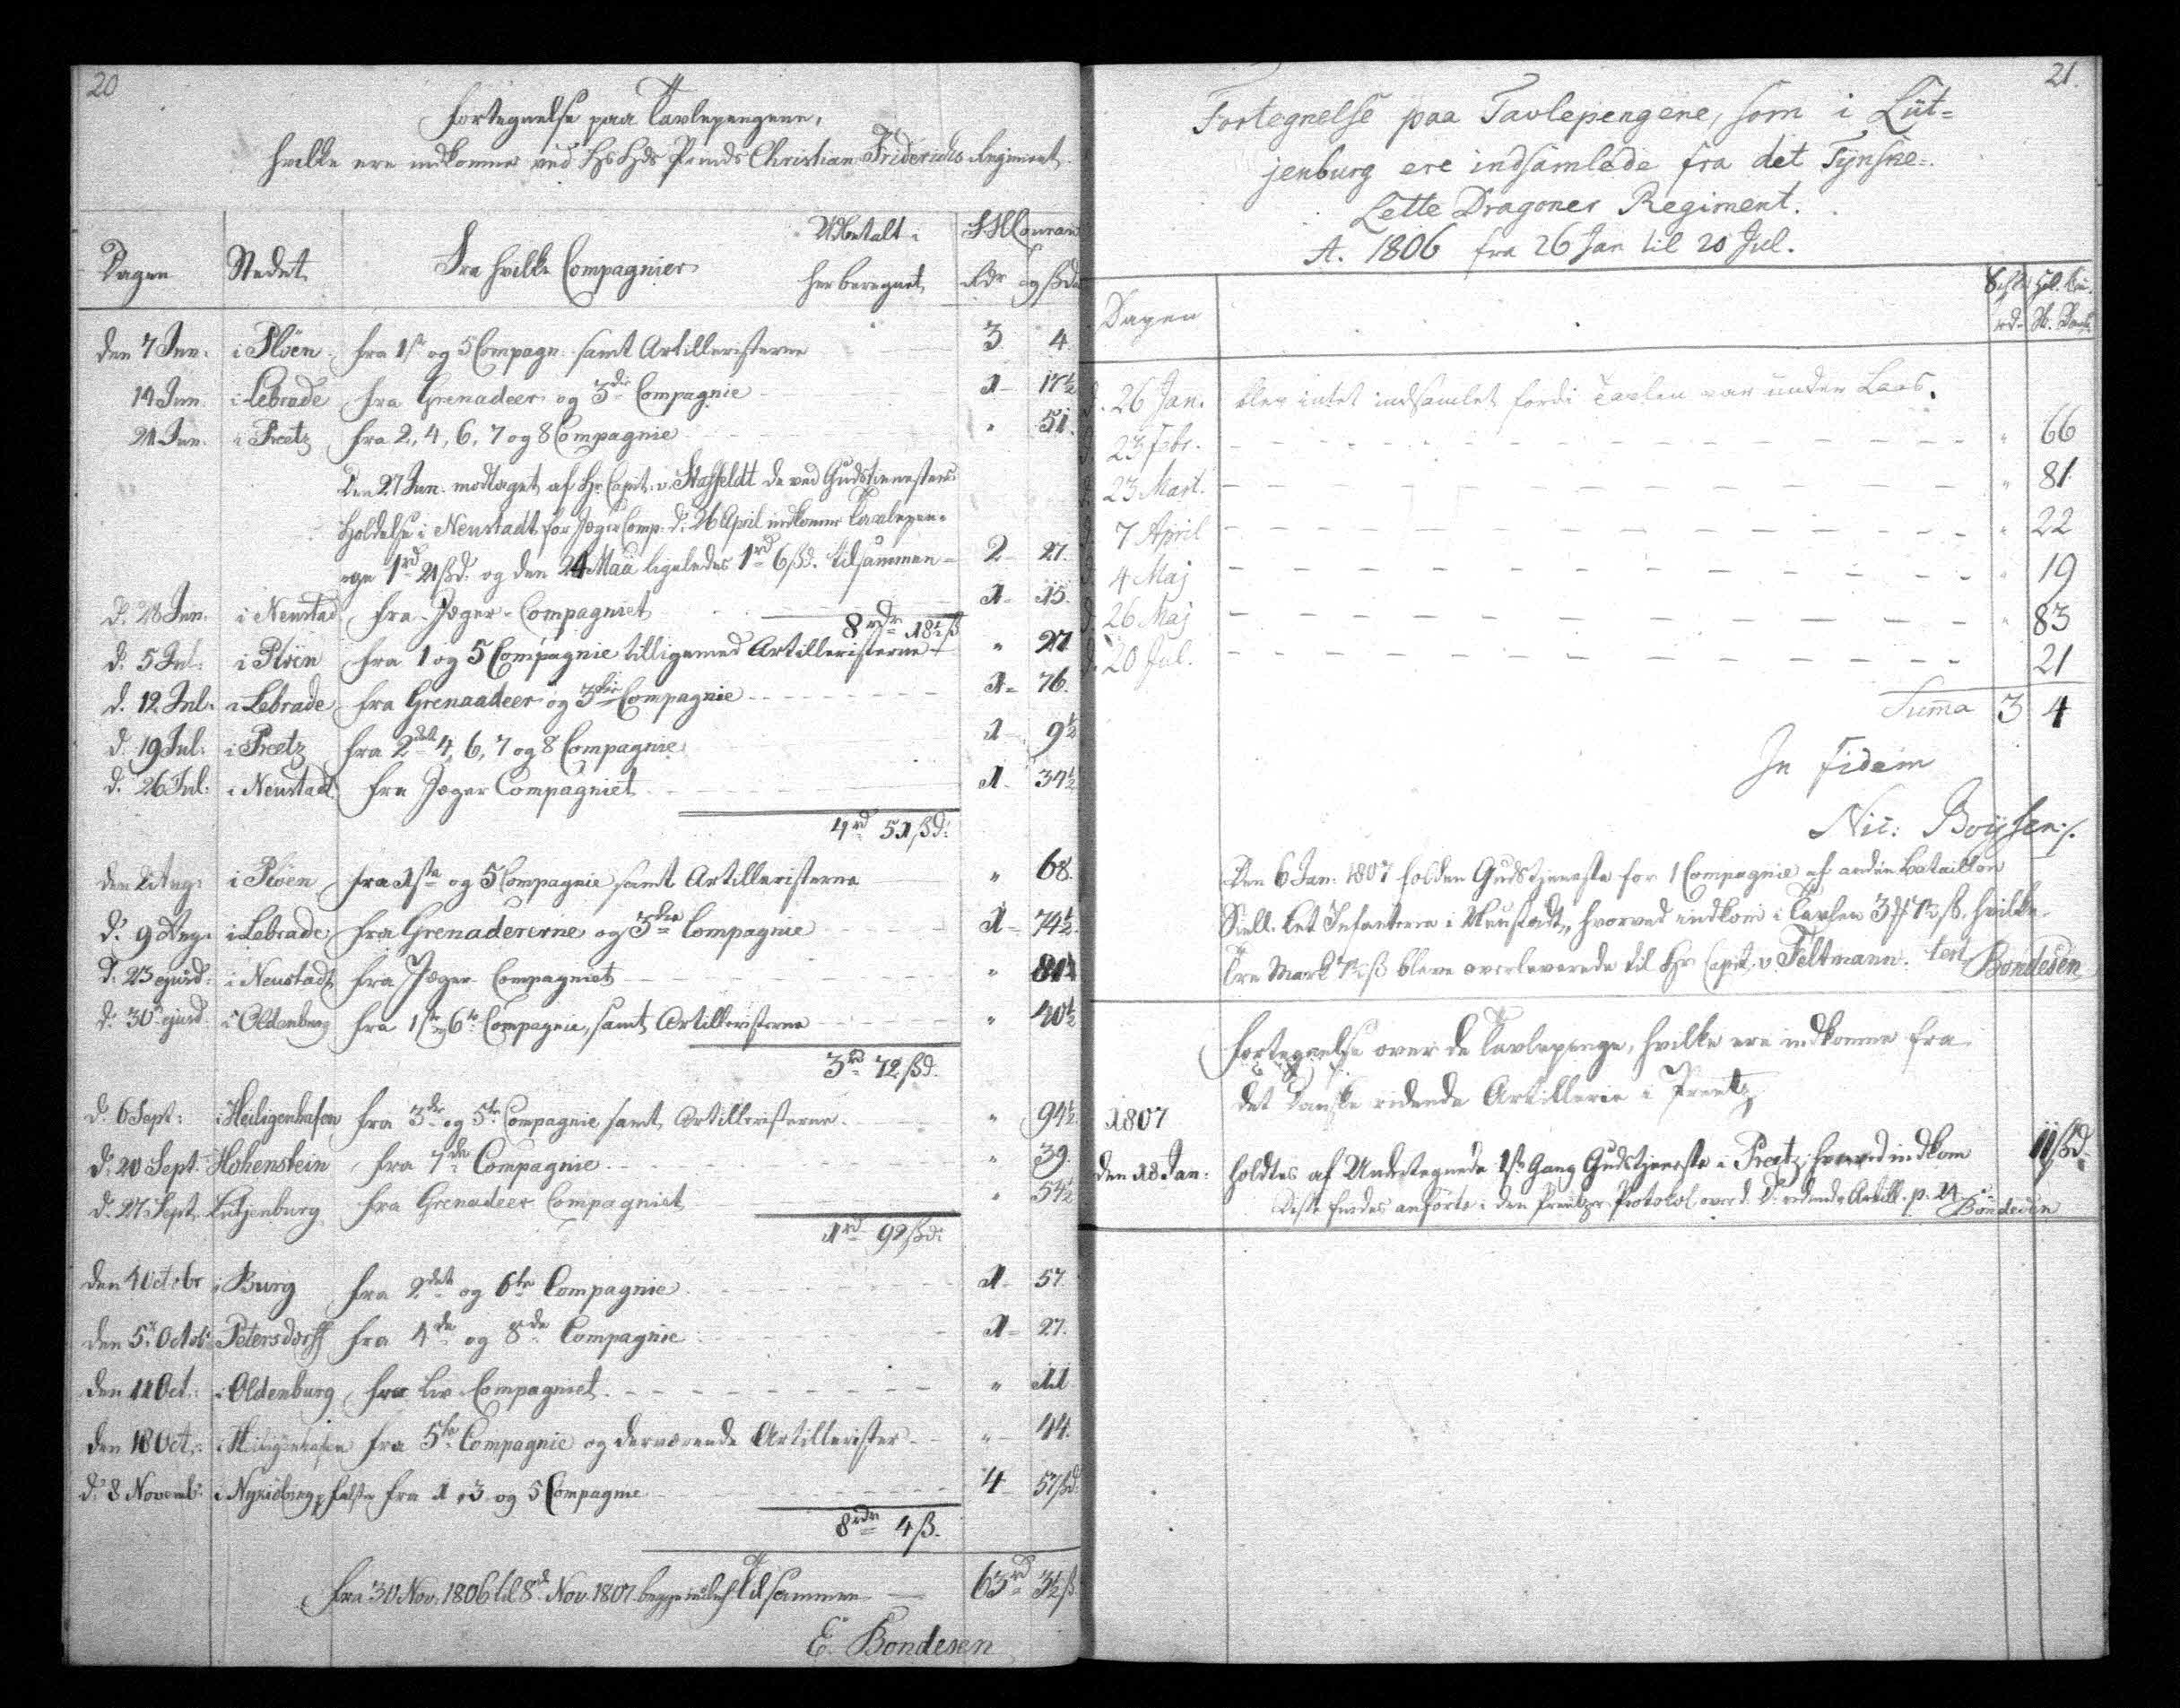 20
Fortegnelse paa Tavlepengene,
hvilke ere indkomne ved Hs Hds Prinds Christian Friderichs Regiment.
Dagen Stedet Fra hvilke Compagnier Udbetalt herberegnet Rdr og ßd
den 7 Jun. i Plöen fra 1ste og 5 Compagn. samt Artilleristerne 3 4
14 Jun. i Lebrade fra Grenadeer og 3die Compagnie 1 17½
21 Jun. i Preetz fra 2, 4, 6, 7 og 8 Compagnie " 51.
Den 27 Jun. modtaget af Hr Capit. v. Staffeldt de ved Gudstienestens
Holdelse i Neustadt for Jæger Comp. d. 26 April indkomne Tavlepen-
ge 1rd 21 ßd. og den 24 Maii ligeledes 1rd 6 ßd. tilsammen 2 27.
d. 28 Jun. i Neustad fra Jæger-Compagniet 1 15.
8rdr 18½ ß
d. 5 Jul. i Plöen fra 1 og 5 Compagnie tilligemed Artilleristerne " 27
d. 12 Jul. i Lebrade fra Grenaadeer og 3die Compagnie 1 76.
d. 19 Jul. i Preetz fra 2det 4, 6, 7 og 8 Compagnie 1 9½
d. 26 Jul. i Neustadt fra Jæger Compagniet 1 34½
4rd 51 ßd.
den 2 Aug. i Plöen fra 1ste og 5 Compagnie samt Artilleristerne " 68.
d. 9 Aug. i Lebrade fra Grenadererne og 3die Compagnie 1 74½
d. 23 ejusd. i Neustadt fra Jæger Compagniet "
d. 30 ejusd. i Oldenburg fra 1ste 6te Compagnie, samt Artilleristerne " 40½
3rd 72 ßd.
d. 6 Sept: i Heiligenhafen fra 3die og 5te Compagnie samt Artilleristerne " 94½
d. 20 Sept. Hohenstein fra 7de Compagnie " 39.
d. 27 Sept. Lütjenburg fra Grenadeer Compagniet " 54½
1rd 92 ßd.
den 4 Octobr i Burg fra 2det og 6te Compagnie 1 57.
den 5 Octob: Petersdorff fra 4de og 8de Compagnie 1 27.
den 11 Oct.: i Oldenburg fra Liv-Compagniet " 11
den 18 Oct.: i Heiligenhafen fra 5te Compagnie og derværende Artillerister " 44.
d. 8 Novemb: i Nyekiöbing p Falste fra 1, 3 og 5 Compagnie 4 57 ßd.
8rdr 4 ß.
fra 30 Nov. 1806 til 8d Nov. 1807 Tilsammen 63rd 3½ ß
E. Bondesen
21.
Fortegnelse paa Tavlepengene, som i Lüt-
jenburg ere indsamlede fra det Fynske
Lette Dragoner Regiment.
A. 1806 fra 26 Jan til 20 Jul.
Dagen
d. 26 Jan. blev intet indsamlet fordi Tavlen var under Laas.
d. 23 Febr. " 66
d. 23 Mart. " 81
d. 7 April " 22
d. 4 Maj " 19
d. 26 Maj " 83
d. 20 Jul. 21
Summa 3 4
In Fidem
Nic: Boysen
Den 6 Jan. 1807 holden Gudstjeneste for 1 Compagnie af anden Bataillon
Siell. Let Infanterie i Neustadt, hvorved indkom i Tavlen 3 ß, hvilke
Tre Mark ß bleve overleverede til Hr Capit. v. Feltmann. test. Bondesen
Fortegnelse over de Tavlepenge, hvilke ere indkomne fra
det Danske ridende Artillerie i Preetz
1807
den 18 Jan: holdtes af Undertegnede 1ste Gang Gudstjeneste i Preetz hvorved indkom 11 ßd.
Disse findes anførte i den Preetzer Protokol over d. D. ridende Artill. p. 24 Bondesen